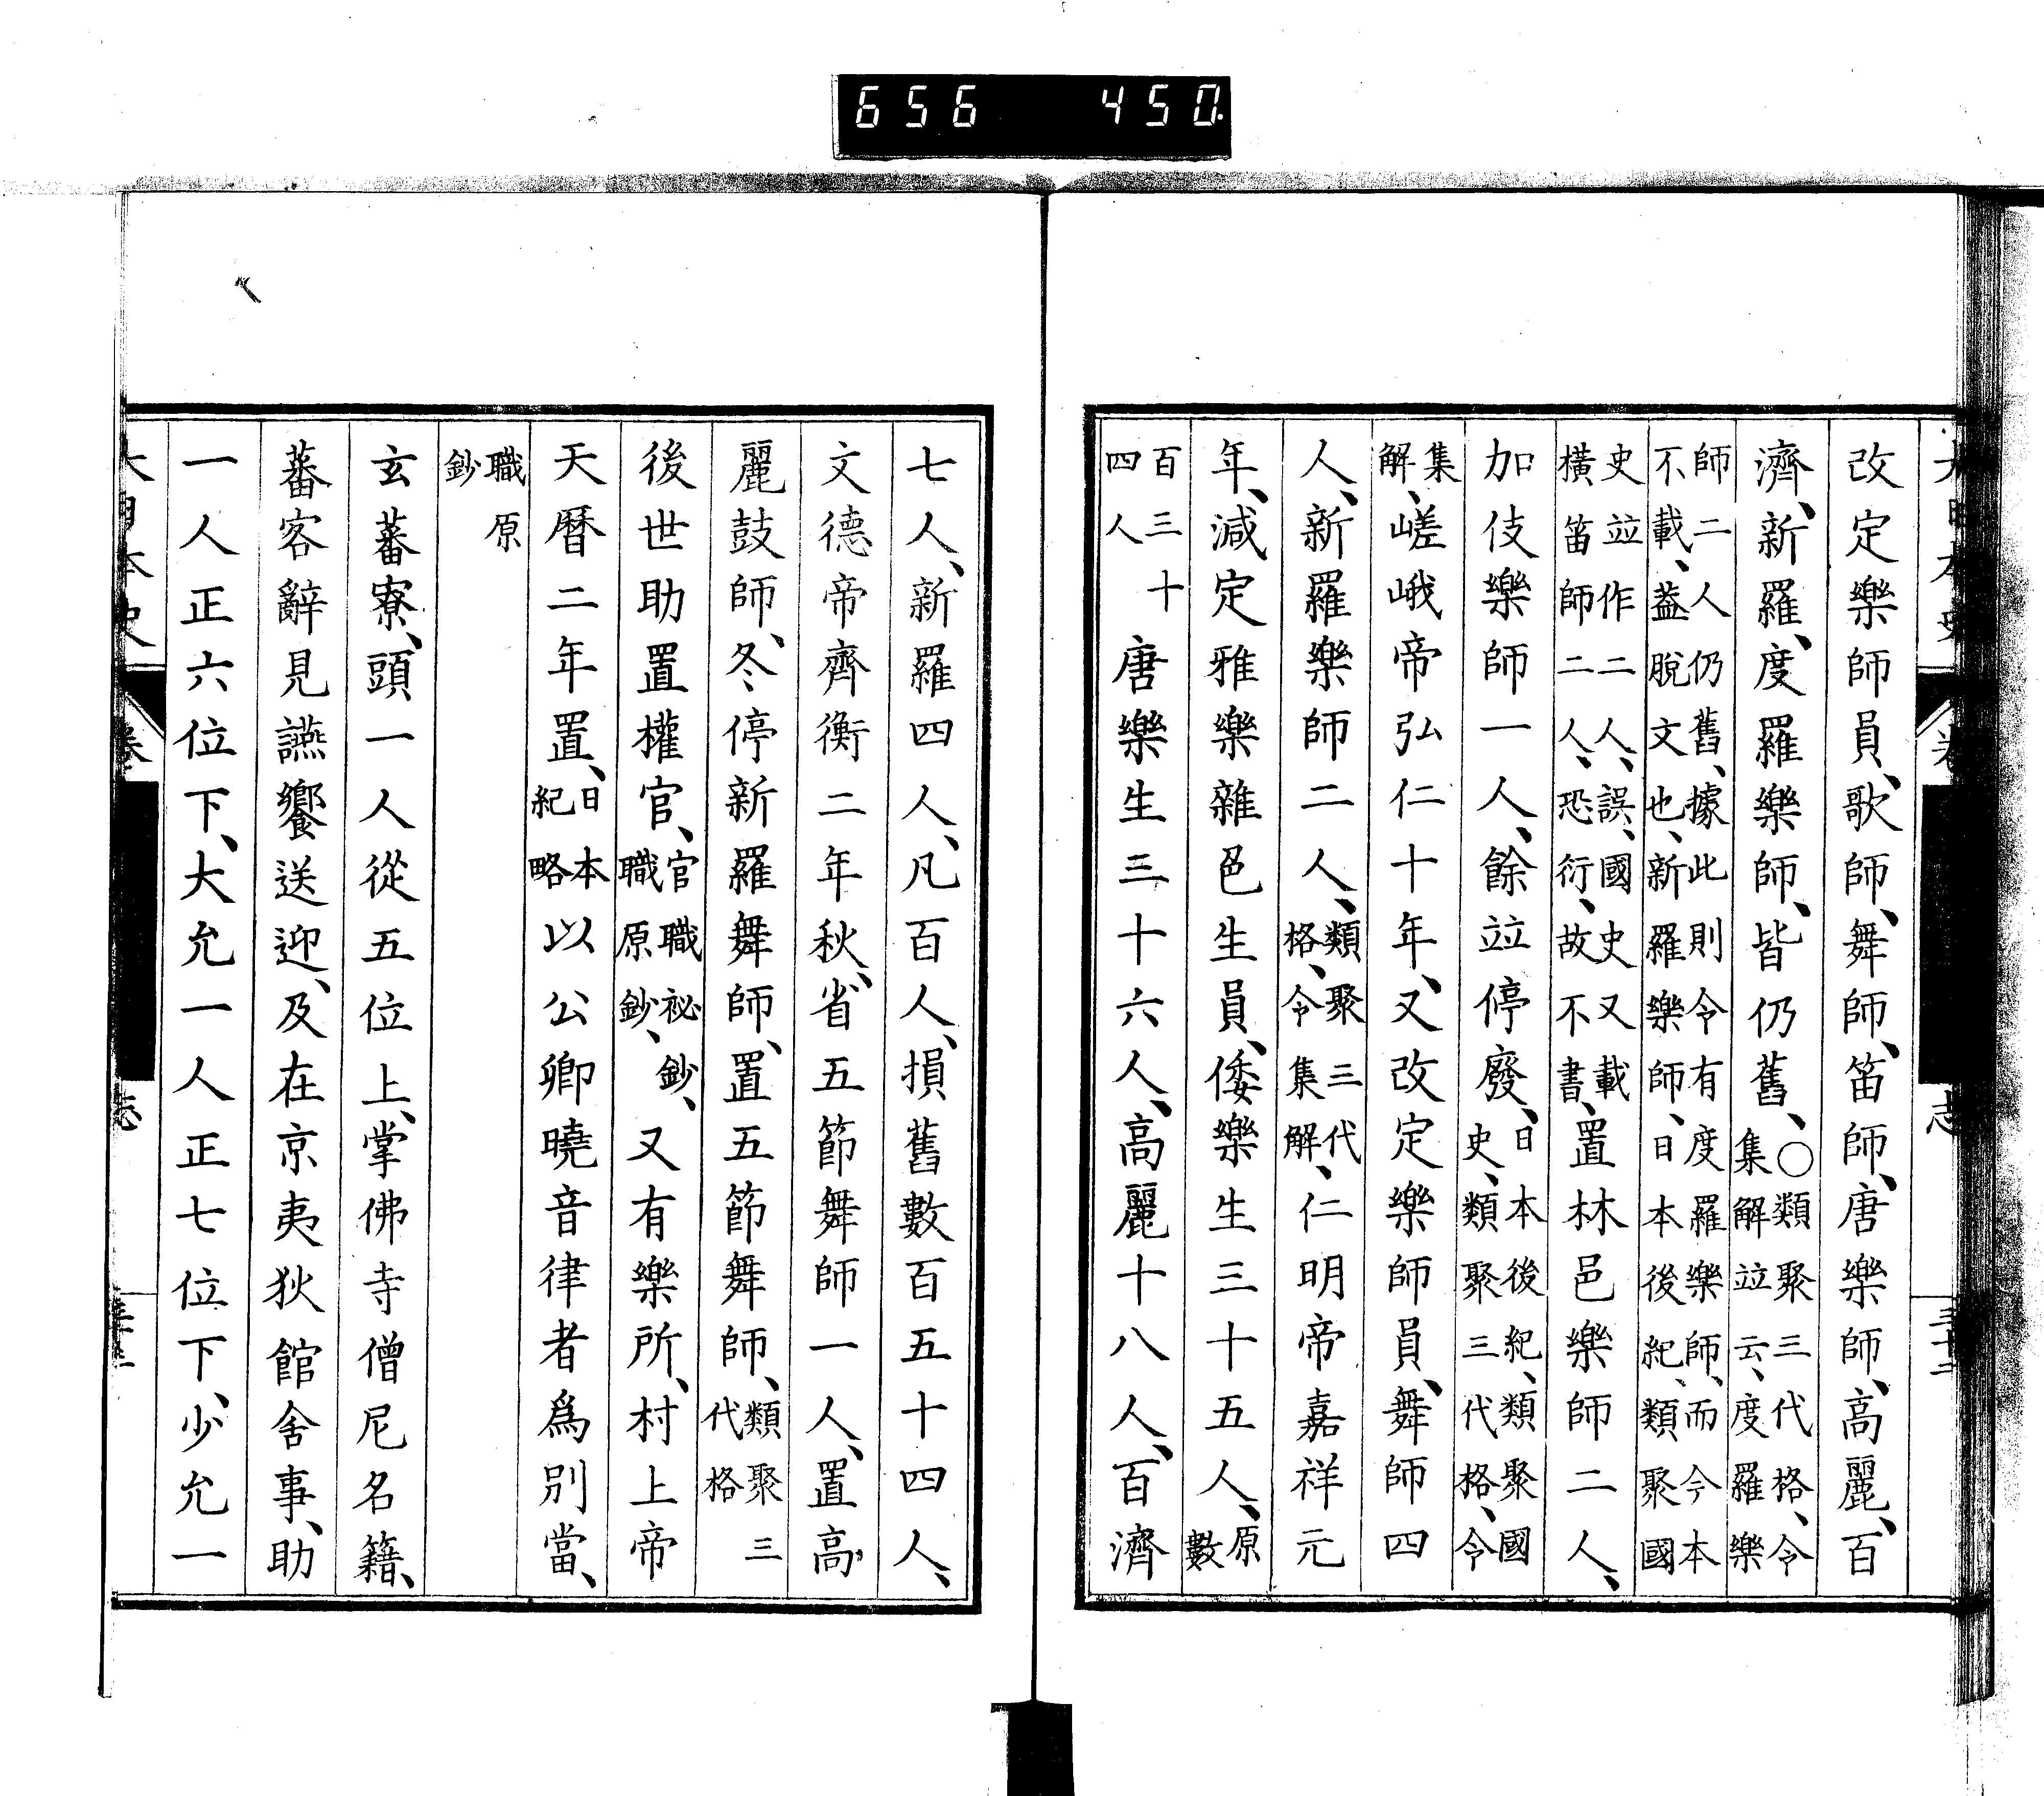 656 450
改定樂師員、歌師、舞師、笛師、唐樂師、高麗、百
濟、新羅、度羅樂師、皆仍舊、○類聚三代格、令集解竝云、度羅樂
師二人仍舊、據此則令有度羅樂師、而今本不載、蓋脫文也、新羅樂師、日本後紀、類聚國
史竝作二人、誤、國史又載橫笛師二人、恐衍、故不書、置林邑樂師二人、
加伎樂師一人、餘竝停廢、日本後紀、類聚國史、類聚三代格、令
集解、嵯峨帝弘仁十年、又改定樂師員、舞師四
人、新羅樂師二人、類聚三代格、令集解、仁明帝嘉祥元
年、減定雅樂雜色生員、倭樂生三十五人、原數
百三十四人唐樂生三十六人、高麗十八人、百濟
七人、新羅四人、凡百人、損舊數百五十四人、
文德帝齊衡二年秋、省五節舞師一人、置高
麗鼓師、冬停新羅舞師、置五節舞師、類聚三代格
後世助置權官、官職祕鈔、職原鈔、又有樂所、村上帝
天曆二年置、日本紀略以公卿曉音律者爲別當、
職原鈔
玄蕃寮、頭一人從五位上、掌佛寺僧尼名籍、
蕃客辭見讌饗送迎、及在京夷狄館舍事、助
一人正六位下、大允一人正七位下、少允一
大日本史
志